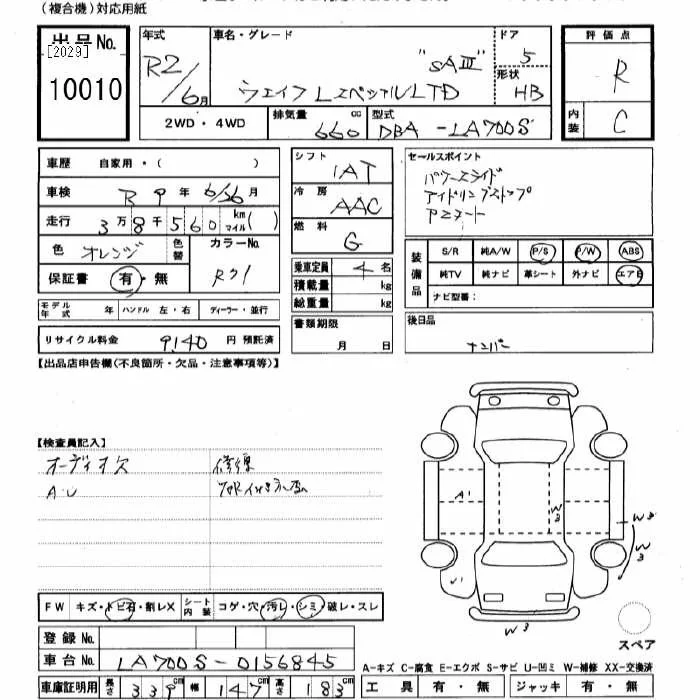 (複合機)対応用紙
出品No.
[2029]
10010
年式
R2/6月
車名・グレード
"SAⅢ"
ウェイク Lスペシャル LTD
ドア
5
形状
HB
評価点
R
内装
C
2WD・4WD
排気量
660
cc
型式
DBA-LA700S
車歴 自家用・( )
車検 R 9年 6/26月
走行 3万8千560 km マイル( )
色 オレンジ 色替
カラーNo.
R71
保証書 有・無
モデル年式 年 ハンドル 左・右 ディーラー・並行
リサイクル料金 9,140 円 預託済
シフト
IAT
冷房
AAC
燃料
G
乗車定員 4名
積載量 kg
総重量 kg
書類期限
月 日
セールスポイント
パワースライド
アイドリングストップ
Pスタート
装備品
S/R 純A/W P/S P/W ABS
純TV 純ナビ 革シート 外ナビ エアB
ナビ型番:
後日品
ナンバー
【出品店申告欄(不良箇所・欠品・注意事項等)】
【検査員記入】
オーディオ欠
A.U
修復
A1
W3
W3
W3
U1
W3
FW キズ・トビ石・割レX
シート内装 コゲ・穴・汚レ・シミ・破レ・スレ
登録No.
車台No. LA700S-0156845
車庫証明用 長さ 339cm 幅 147cm 高さ 183cm
スペア
A-キズ C-腐食 E-エクボ S-サビ U-凹ミ W-補修 XX-交換済
工具 有・無 ジャッキ 有・無